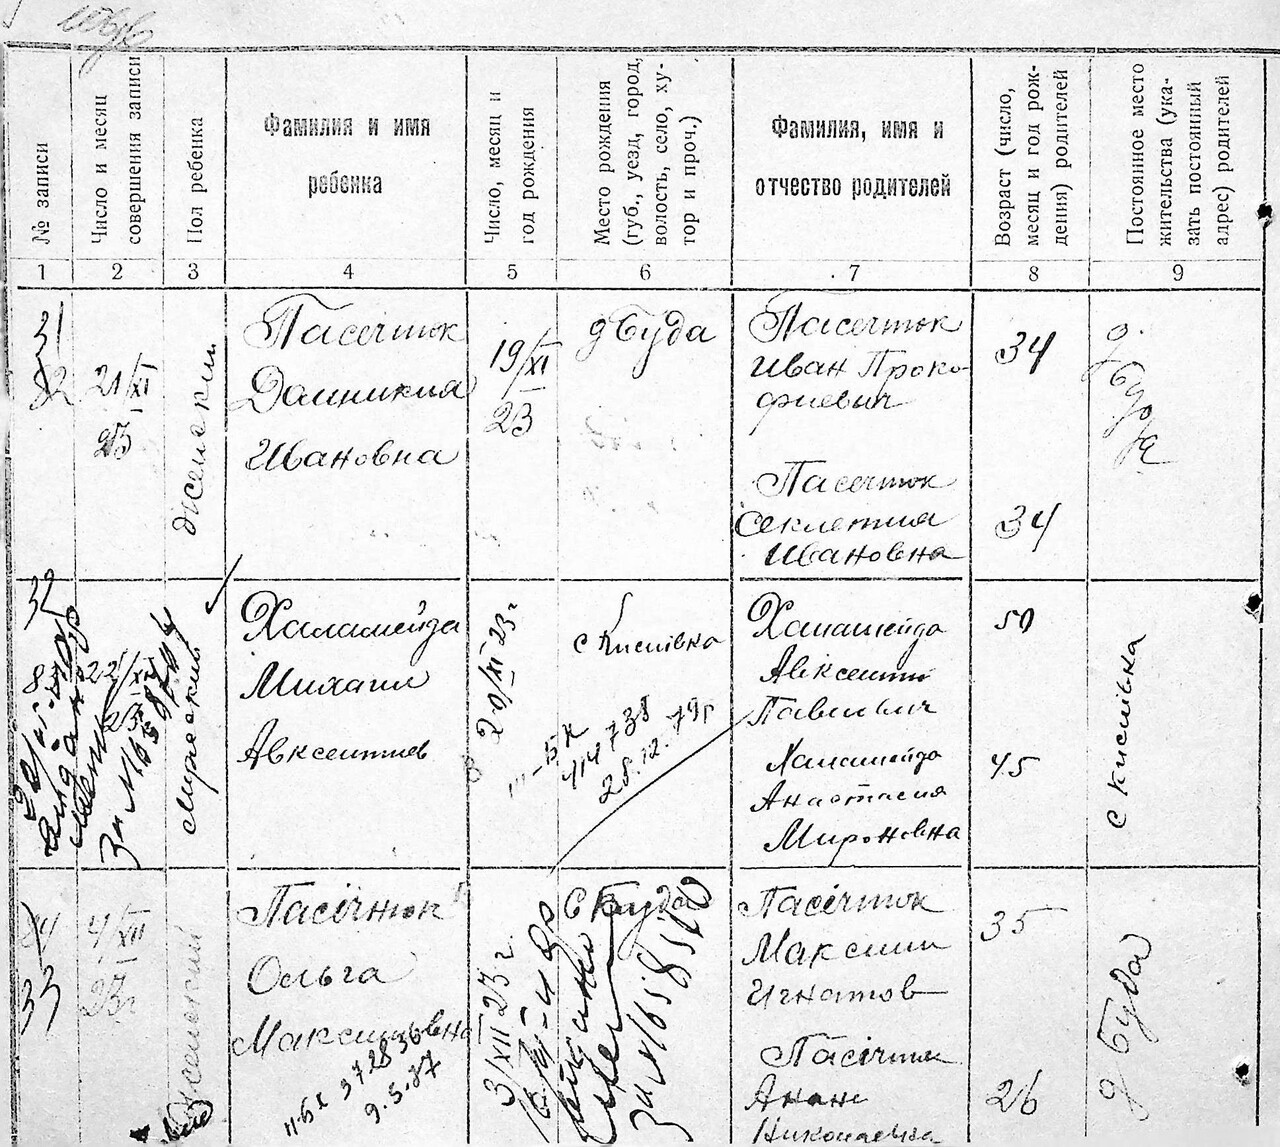 № записи
Число и месяц
совершения записи
Пол ребенка
Фамилия и имя
ребенка
Число, месяц и
год рождения
Место рождения
(губ., уезд, город,
волость, село, ху-
тор и проч.)
Фамилия, имя и
отчество родителей
Возраст (число,
месяц и год рож-
дения) родителей
Постоянное место
жительства (ука-
зать постоянный
адрес) родителей
1
2
3
4
5
6
7
8
9
31
82
21/XI
23
женский
Пасечнюк
Домникия
Ивановна
19/XI
23
д Буда
Пасечнюк
Иван Проко-
фиевич
34
Пасечнюк
Секлетия
Ивановна
34
д. Буда
32
8
22/XI
23
мужеский
Халамейда
Михаил
Авксентиев
20/XI 23 г
с Кислівка
III-БК
414738
28.12.79г
Халамейда
Авксентий
Павлович
50
Халамейда
Анастасия
Мироновна
45
с Кислівка
84
33
4/XII
23г
Женский
Пасічнюк
Ольга
Максимовна
II-БК 372836
9.5.87
3/XII 23 г.
с Буда
Пасічнюк
Максим
Игнатов
35
Пасічнюк
Анна
Николаевна
26
д Буда